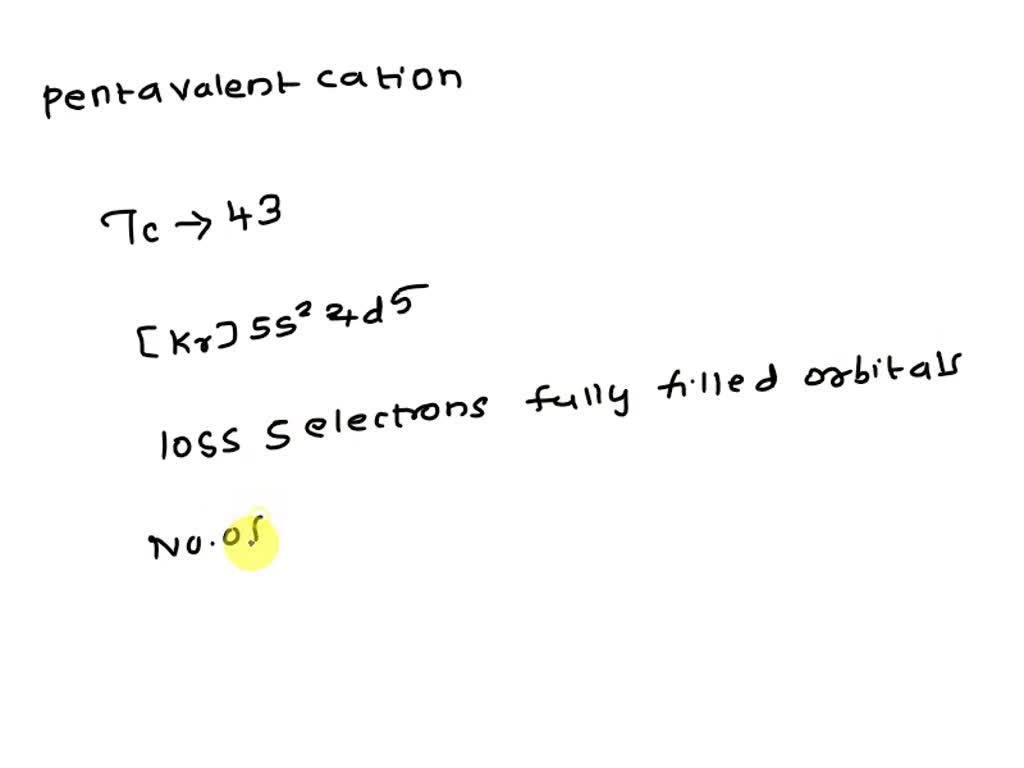 pentavalent cation
Tc → 43
[Kr] 5s² 4d⁵
loss 5 electrons fully filled orbitals
No. of